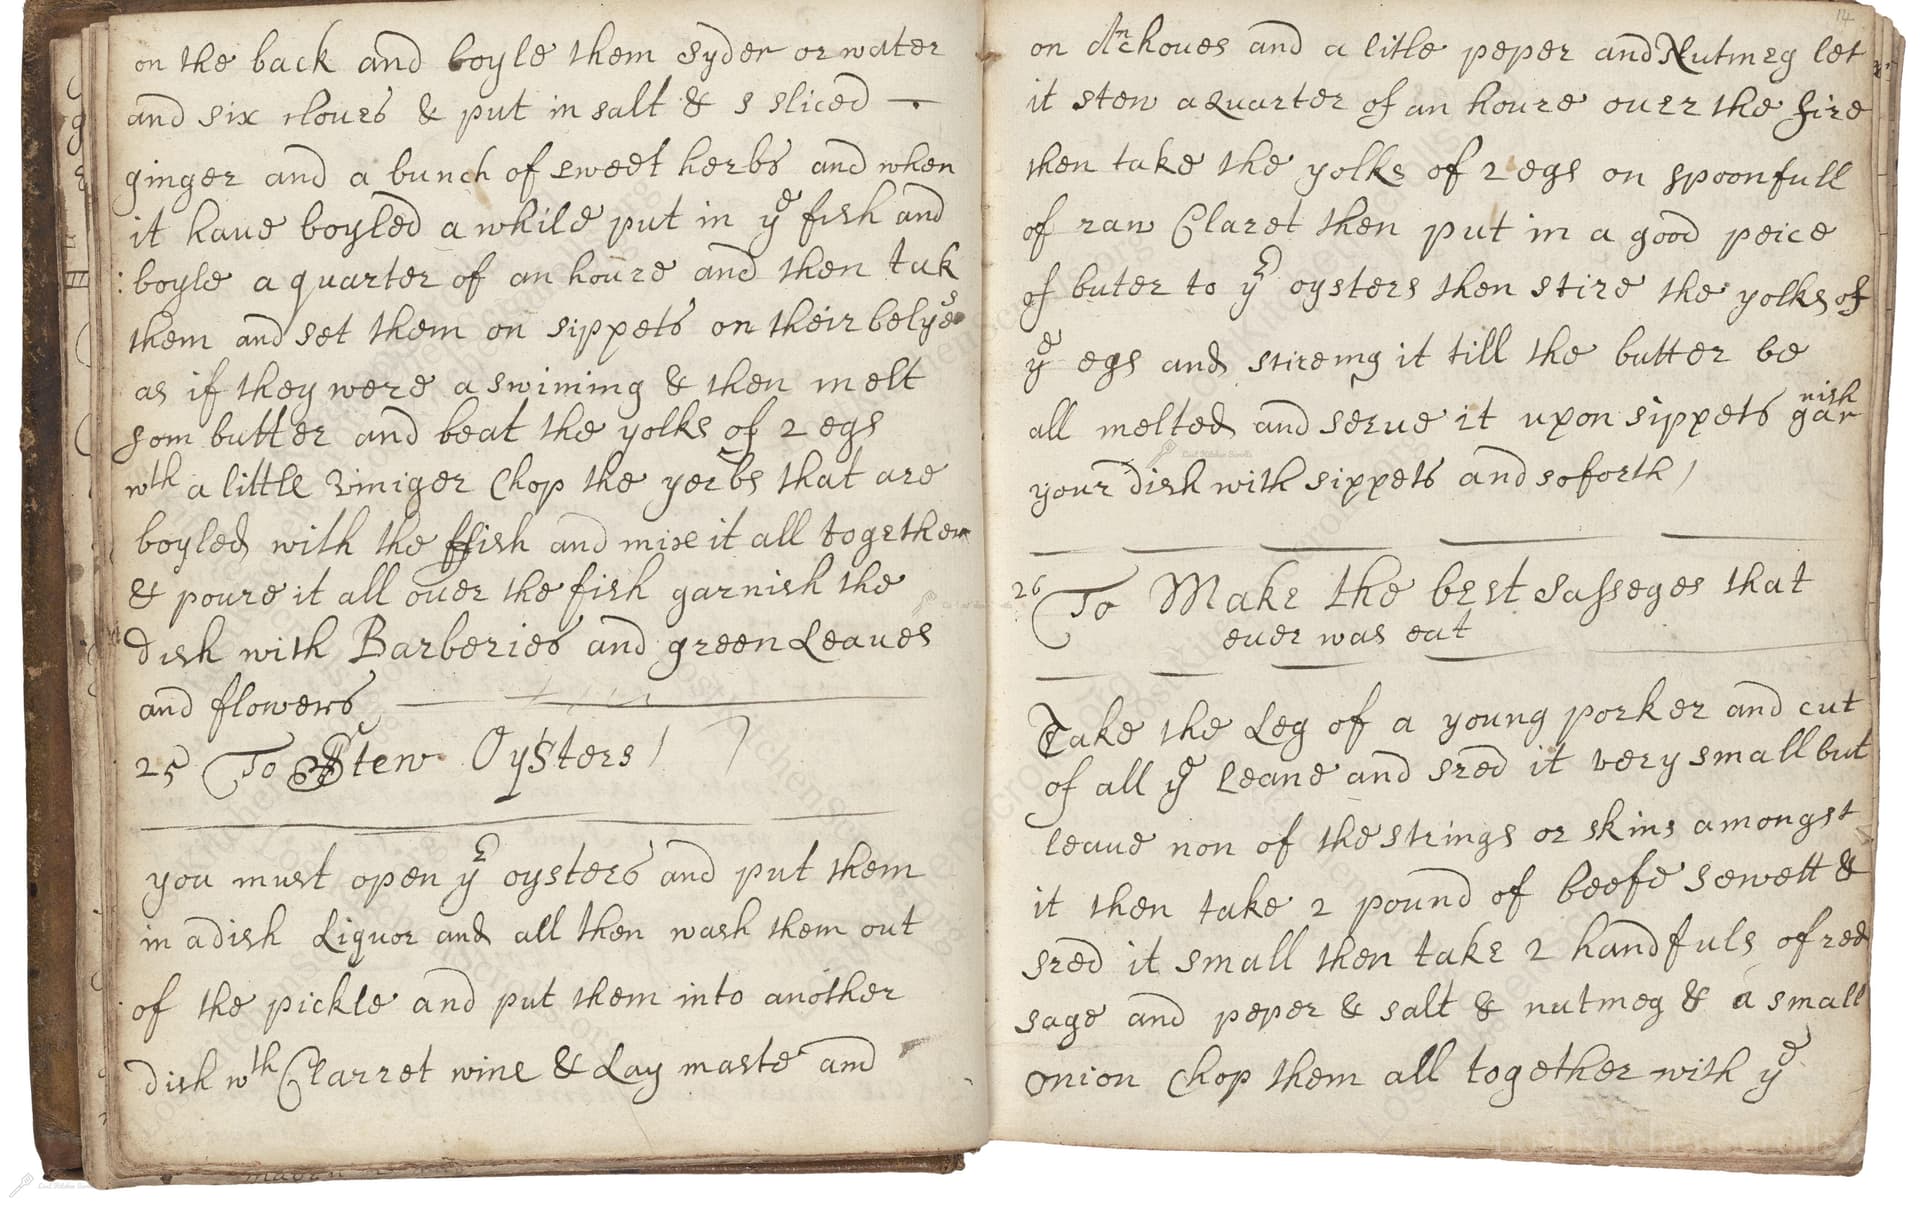 on the back and boyle them syder or water
and six cloues & put in salt & s sliced —
ginger and a bunch of sweet herbs and when
it haue boyled a while put in yᵉ fish and
boyle a quarter of an houre and then tak
them and set them on sippets on their belyes
as if they were a swiming & then melt
som butter and beat the yolks of 2 egs
wth a little viniger Chop the yerbs that are
boyled with the ffish and mixe it all together
& poure it all ouer the fish garnish the
dish with Barberies and green Leaues
and flowers
25 To Stew Oysters
you must open yᵉ oysters and put them
in a dish Liquor and all then wash them out
of the pickle and put them into another
dish wth Clarret wine & Lay maste and
14
on Anchoues and a litle peper and Nutmeg let
it stew a quarter of an houre ouer the fire
then take the yolks of 2 egs on spoonfull
of raw Claret then put in a good peice
of buter to yᵉ oysters then stire the yolks of
yᵉ egs and stireing it till the butter be
all melted and serue it upon sippets garnish
your dish with sippets and soforth
26 To Make the best Sasseges that
euer was eat
Take the Leg of a young porker and cut
of all yᵉ Leane and sred it very small but
leaue non of the strings or skins amongst
it then take 2 pound of beefe sewett &
sred it small then take 2 handfuls of red
sage and peper & salt & nutmeg & a small
onion Chop them all together with yᵉ